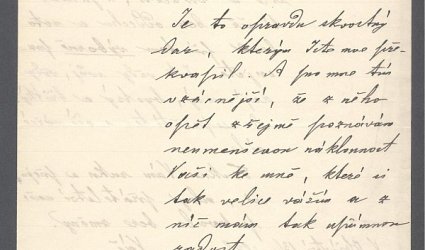 Je to opravdu skvostný
dar, kterým jste mne pře-
kvapil. A pro mne tím
vzácnější, že z něho
opět zřejmě poznávám
nezmenšenou náklonnost
Vaši ke mně, které si
tak velice vážím a z
níž mám tak upřímnou
radost